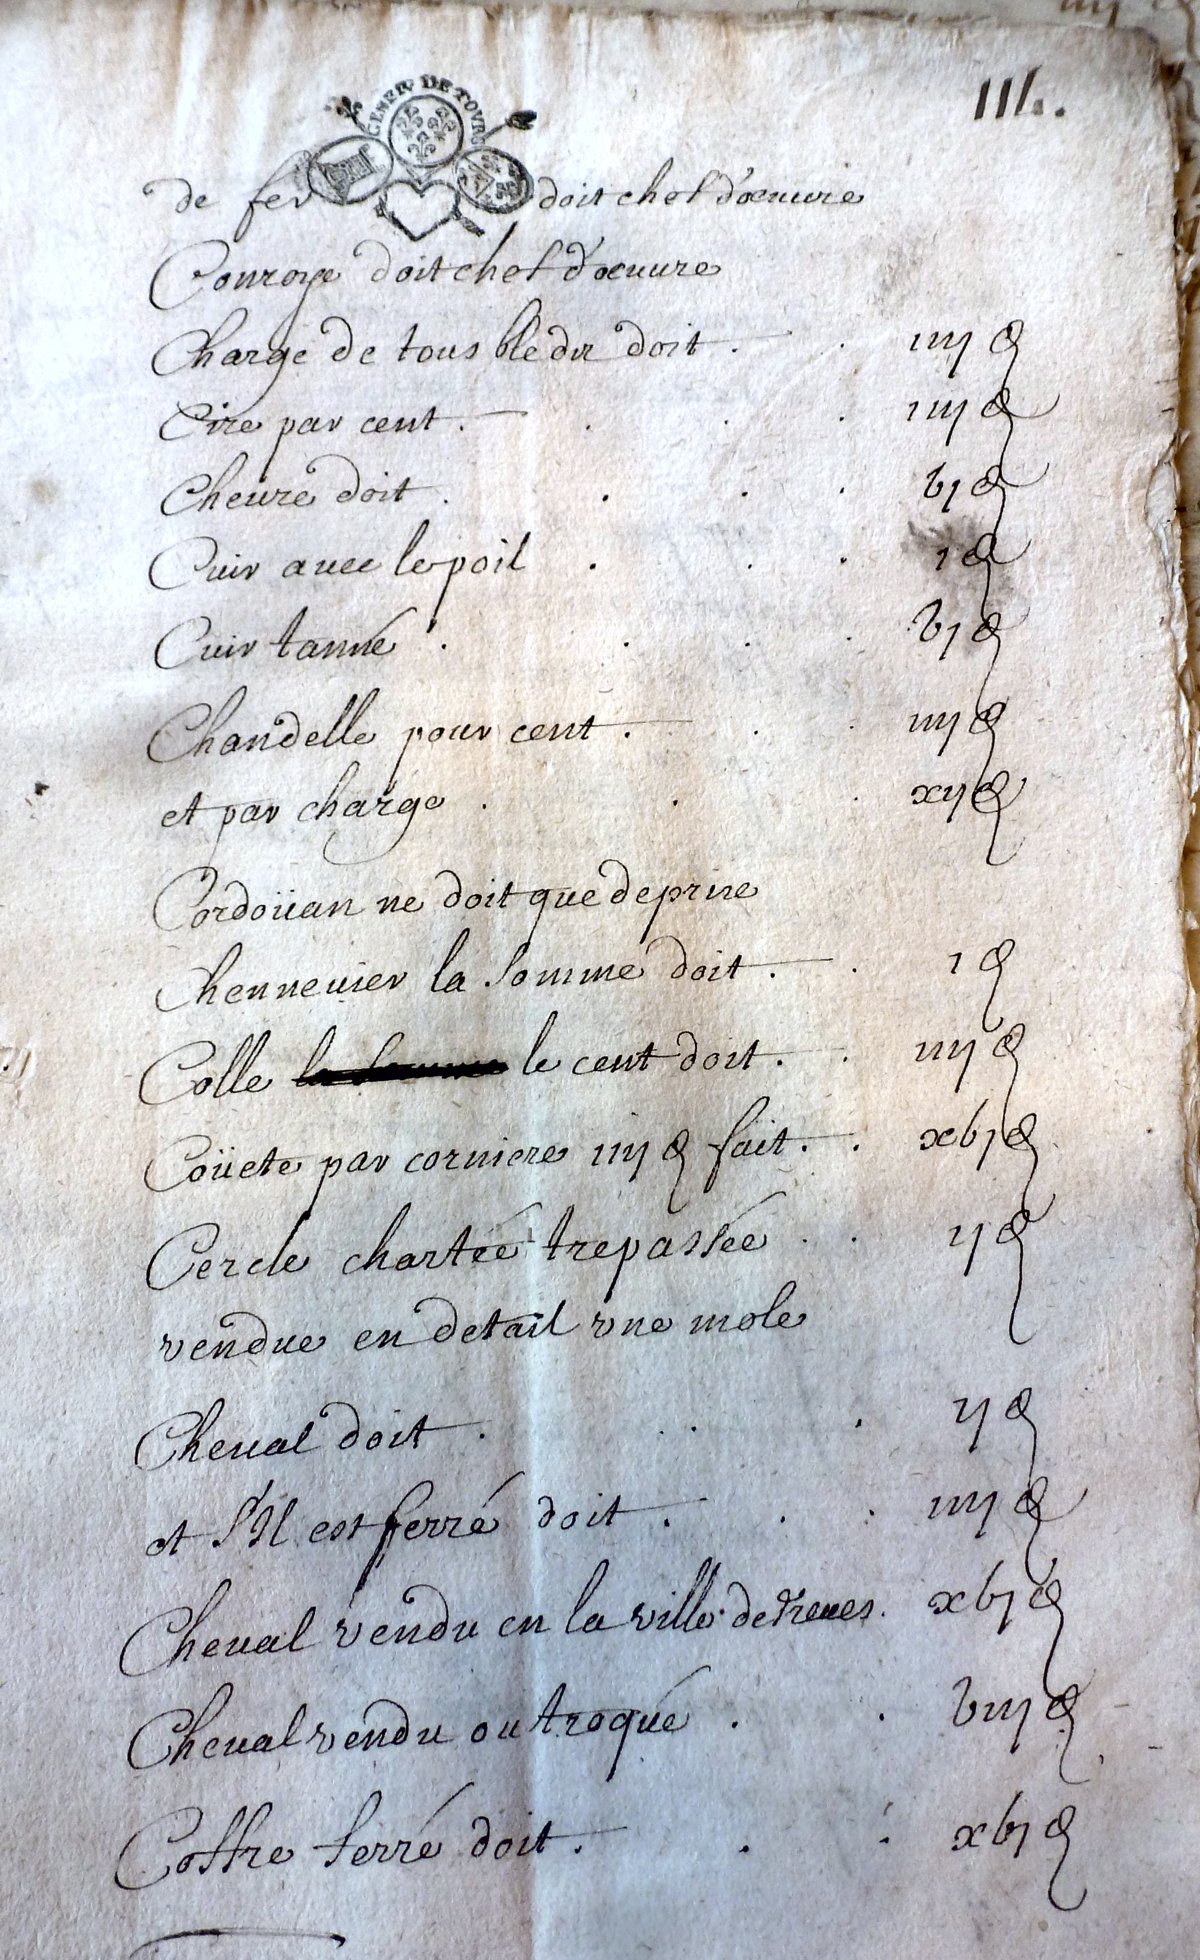 IIII.
GENER DE TOVRS
de fer doit chef d'oeuure
Conroye doit chef d'oeuure
Charge de tous bledz doit . . iiij d
Cire par cent . . . . iiij d
Cheure doit . . . . bj d
Cuir auec le poil . . . j d
Cuir tanné . . . . bj d
Chandelle pour cent . . . iiij d
et par charge . . . xij d
Cordoüan ne doit que deprise
Chenneuier la somme doit . . j d
Colle le cent doit . . iiij d
Coüete par corniere iiij d fait . . xbj d
Cercle chartée trepassée . . ij d
vendue en detail vne mole
Cheual doit . . . . ij d
et s'Il est ferré doit . . . iiij d
Cheual vendu en la ville de . xbj d
Cheual vendu ou troqué . . biij d
Coffre ferré doit . . . xbj d